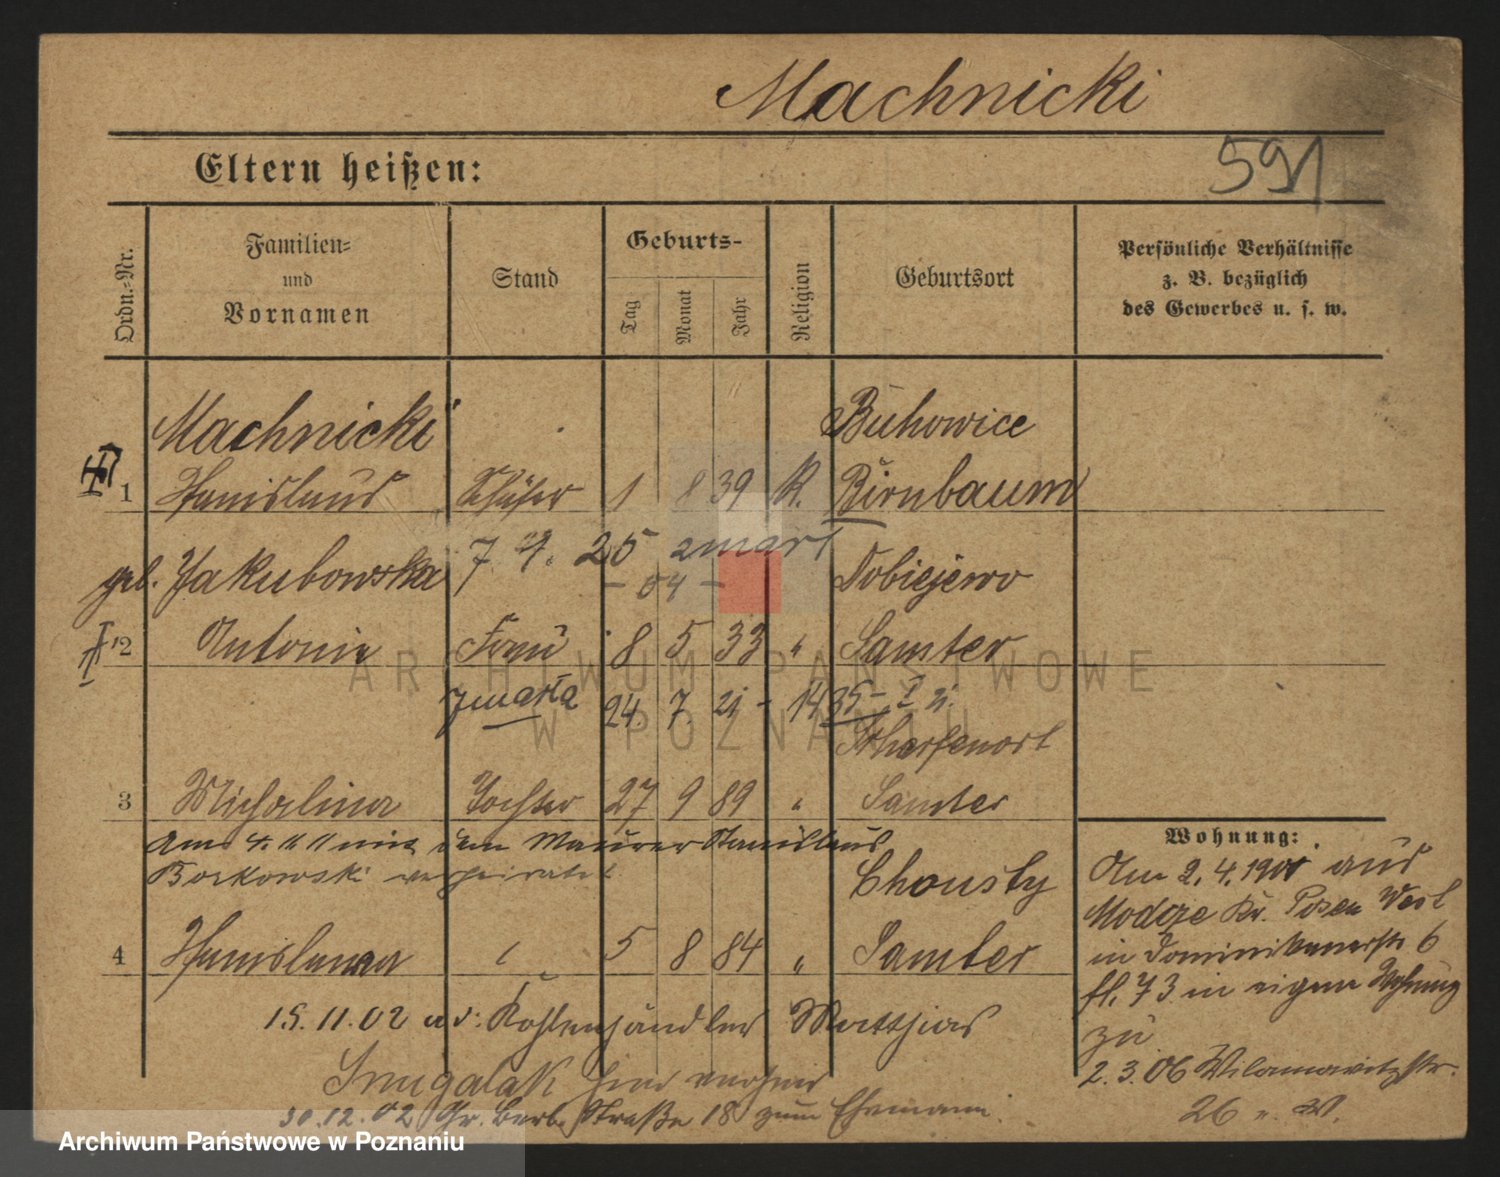 Machnicki
591
Eltern heißen:
Ordn.-Nr.
Familien-
und
Vornamen
Stand
Geburts-
Tag
Monat
Jahr
Religion
Geburtsort
Persönliche Verhältnisse
z. B. bezüglich
des Gewerbes u. s. w.
Machnicki
Buhowice
1 Stanislaus Schäfer 1 8 39 K. Birnbaum
7. 9. 25 zmarł
geb. Jakubowska - 04 - Dobiejewo
2 Antonie Frau 8 5 33 " Samter
zmarła 24. 7. 21 -
Scharfenort
3 Michalina Tochter 27 9 89 " Samter
Am 4. 11 mit dem Maurer Stanislaus
Borkowski verheiratet
Chousty
4 Stanislawa 5 8 84 " Samter
15.11.02 Kohlenhändler Matthias
Smugalak
30.12.02 Gr. Berl. Straße 18 zum Ehemann.
Wohnung:
Am 2.4.1901 aus
Modrze Kr. Posen West
in Dominikanerstr 6
fl. 73 in eigene Wohnung
zu
2.3.06 Wilamowitzstr.
26
ARCHIWUM PAŃSTWOWE
W POZNANIU
Archiwum Państwowe w Poznaniu